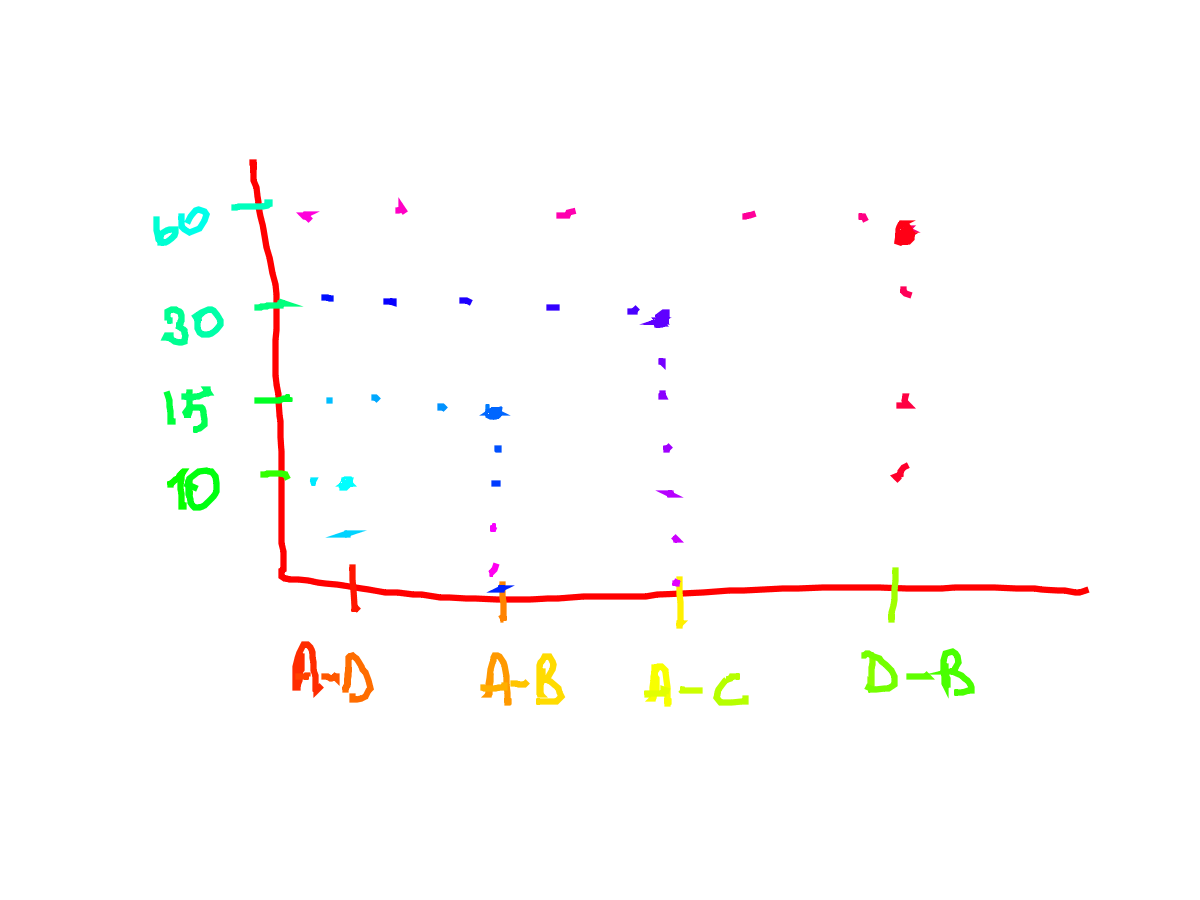 60
30
15
10
A-D A-B A-C D-B